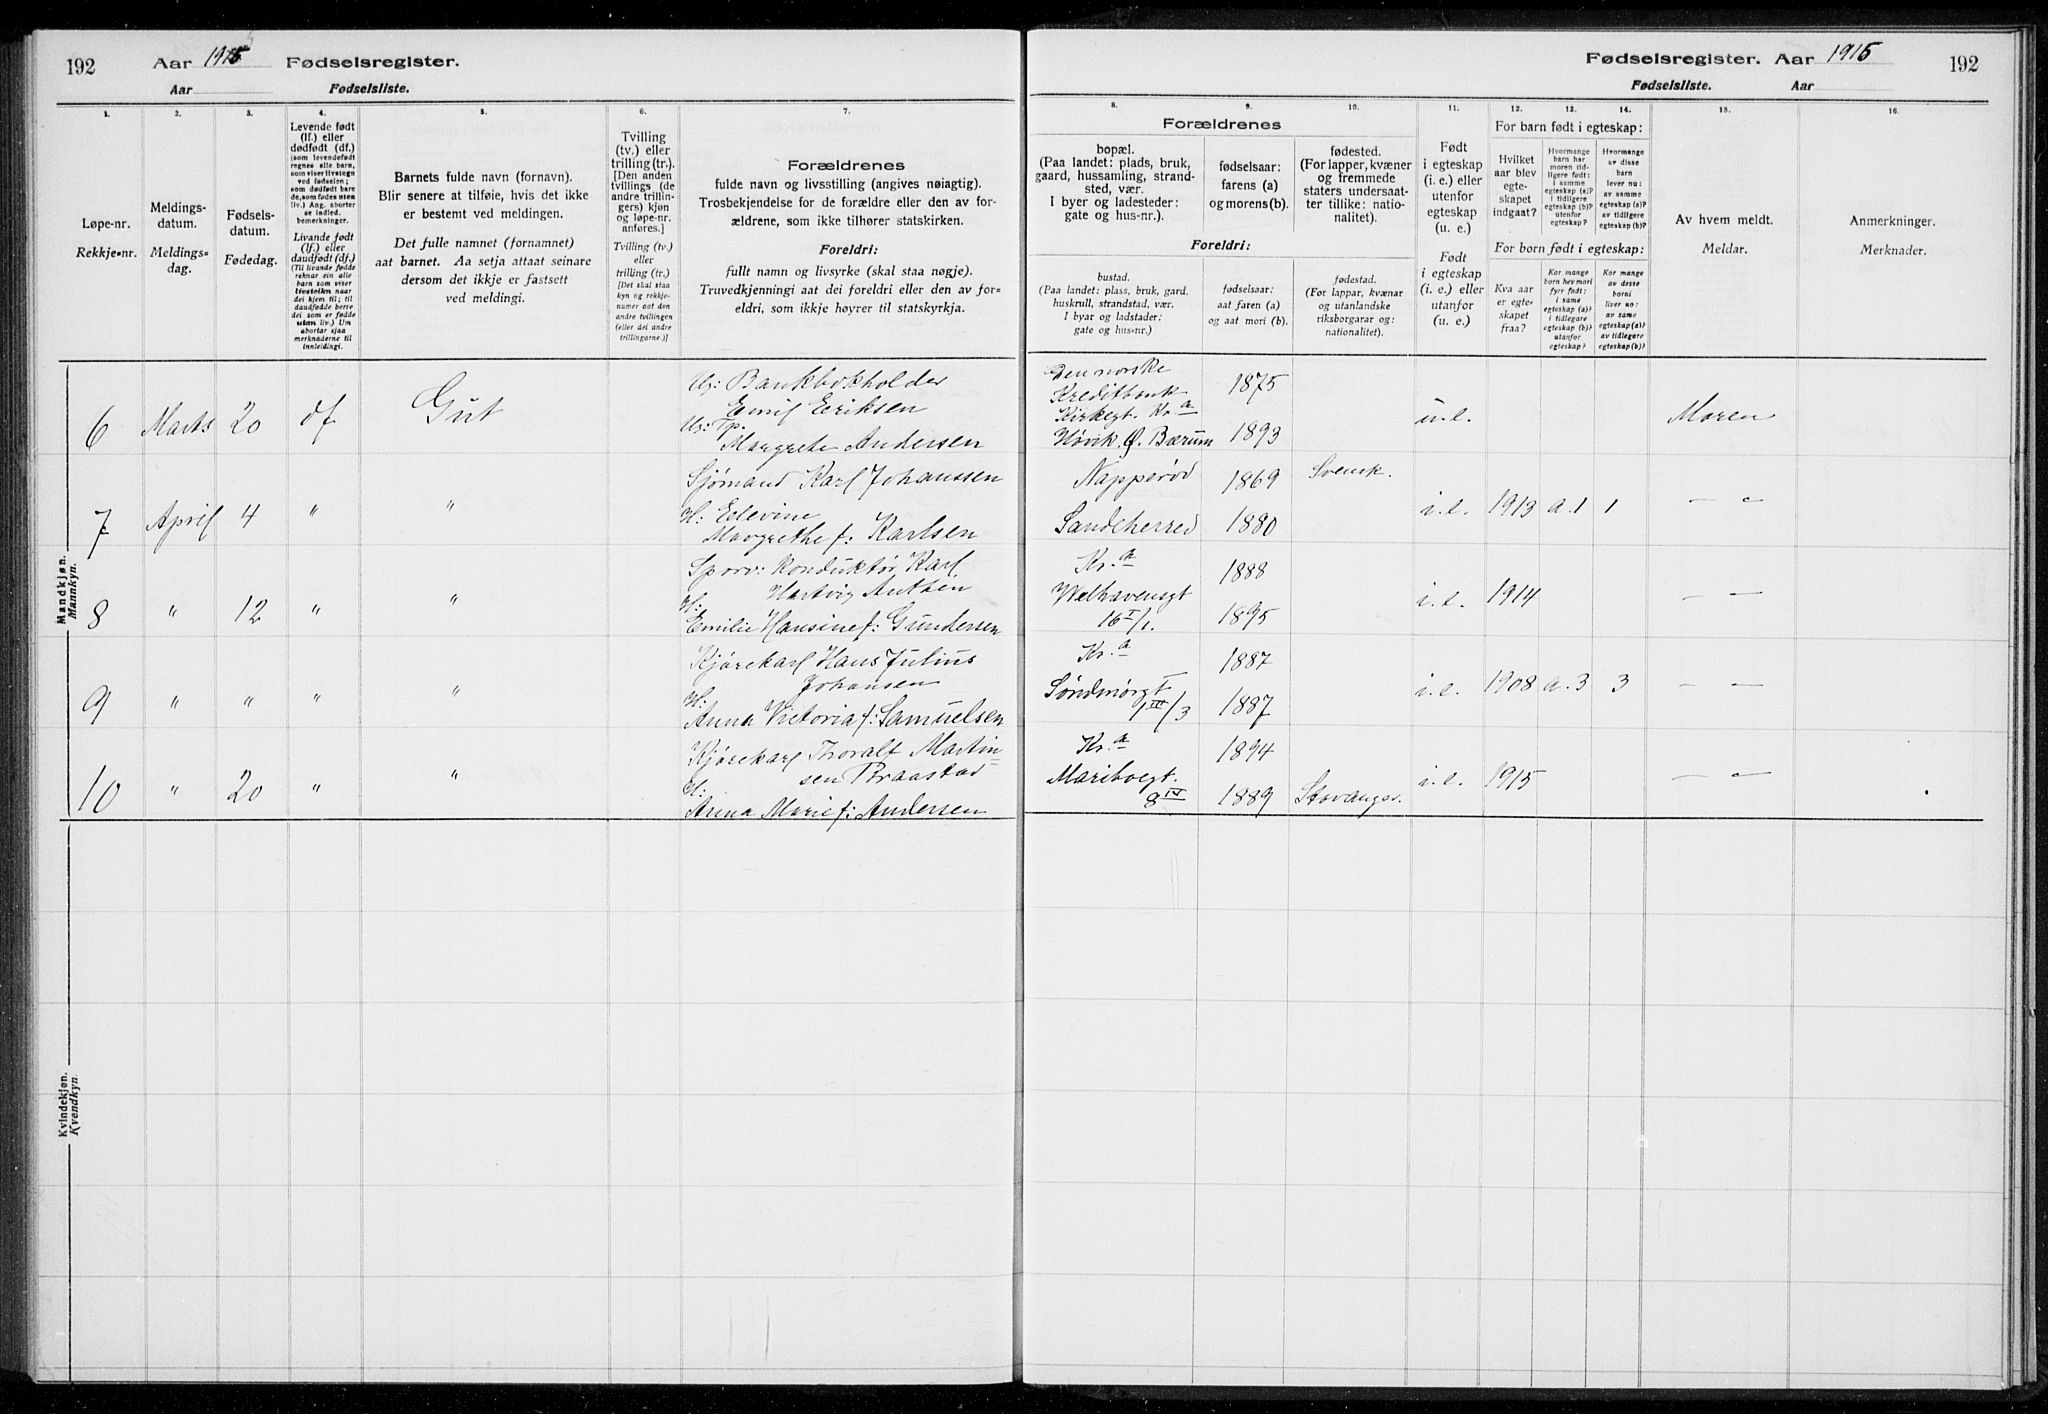 192 Aar 1915 Fødselsregister.
Aar Fødselsliste.
Fødselsregister. Aar 1915 192
Fødselsliste. Aar
1.
Løpe-nr.
Rekkje-nr.
2.
Meldings-
datum.
Meldings-
dag.
3.
Fødsels-
datum.
Fødedag.
4.
Levende født
(lf.) eller
dødfødt (df.)
(som levendefødt
regnes alle barn,
som viser livstegn
ved fødselen;
som dødfødt bare
de, som fødes uten
liv.) Ang. aborter
se indled.
bemerkninger.
Livande født
(lf.) eller
daudfødt (df.)
(Til livande fødde
reknar ein alle
barn som viser
livsteikn naar
dei kjem til; til
daudfødde berre
dei som er fødde
utan liv.) Um
abortar sjaa
merknaderne til
innleidingi.
5.
Barnets fulde navn (fornavn).
Blir senere at tilføie, hvis det ikke
er bestemt ved meldingen.
Det fulle namnet (fornamnet)
aat barnet. Aa setja attaat seinare
dersom det ikkje er fastsett
ved meldingi.
6.
Tvilling
(tv.) eller
trilling (tr.).
[Den anden
tvillings (de
andre trillin-
gers) kjøn
og løpe-nr.
anføres.]
Tvilling (tv.)
eller
trilling (tr.)
[Det skal staa
kyn og rekkje-
numer aat den
andre tvillingen
(eller dei andre
trillingarne.)]
7.
Forældrenes
fulde navn og livsstilling (angives nøiagtig).
Trosbekjendelse for de forældre eller den av for-
ældrene, som ikke tilhører statskirken.
Foreldri:
fullt namn og livsyrke (skal staa nøgje).
Truvedkjenningi aat dei foreldri eller den av for-
eldri, som ikkje høyrer til statskyrkja.
8. 9. 10.
Forældrenes
bopæl.
(Paa landet: plads, bruk,
gaard, hussamling, strand-
sted, vær.
I byer og ladesteder:
gate og hus-nr.)
fødselsaar:
farens (a)
og morens (b).
fødested.
(For lapper, kvæner
og fremmede
staters undersaat-
ter tillike: natio-
nalitet).
Foreldri:
bustad.
(Paa landet: plass, bruk, gard,
huskrull, strandstad, vær.
I byar og ladstader:
gate og hus-nr.)
fødselsaar:
aat faren (a)
og aat mori (b).
fødestad.
(For lappar, kvænar
og utanlandske
riksborgarar og:
nationalitet).
11.
Født
i egteskap
(i. e.) eller
utenfor
egteskap
(u. e.)
Født
i egteskap
(i. e.) eller
utanfor
(u. e.)
12. 13. 14.
For barn født i egteskap:
Hvilket
aar blev
egte-
skapet
indgaat?
Hvormange
barn har
moren tid-
ligere født:
i samme
egteskap (a)?
i tidligere
egteskap (b)?
utenfor
egteskap?
Hvormange
av disse
barn
lever nu:
av samme
egteskap (a)?
av tidligere
egteskap (b)?
For born født i egteskap:
Kva aar
er egte-
skapet
fraa?
Kor mange
born hev mori
fyrr født:
i same
egteskap (a)?
i tidlegare
egteskap (b)?
utanfor
egteskap?
Kor mange
av desse
borni
liver no:
av same
egteskap (a)?
av tidlegare
egteskap (b)?
15.
Av hvem meldt.
Meldar.
16.
Anmerkninger.
Merknader.
Mandkjøn.
Mannkyn.
6 Marts 20 df Gut
Ug: Bankbokholder
Emil Eriksen
Ug: Tp.
Margrethe Andersen
Den norske
Kreditbank
Kirkegt. Kr.a
Høvik. Ø. Bærum
1875
1893
u.e. Moren
7 April 4 " "
Sjømand Karl Johanssen
H: Edevine
Margrethe f: Karlsen
Napperød
Sandeherred
1869 Svensk.
1880
i.e. 1913 a.1 1 — " —
8 " 12 " "
Sporv: Konduktør Karl
Hartvig Antsén
H:
Emilie Hansine f: Gundersen
Kr.a
Welhavensgt
16 I/1.
1888
1895
i.e. 1914 — —
9 " " " "
Kjørekarl Hans Julius
Johansen
H:
Anna Victoria f: Samuelsen
Kr.a
Søndmørgt
1 III/3
1887
1887
i.e. 1908 a.3 3 — —
10 " 20 " "
Kjørekarl Thoralf Martin=
sen Braastad
H:
Anna Marie f: Andersen
Kr.a
Maribogt.
8 IV
1894
1889 Stavanger.
i.e. 1915 — " —
Kvindekjøn.
Kvendkyn.